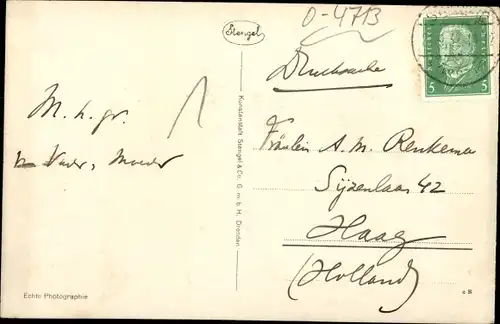 Stengel
0-4713
Drucksache
5 5
M. h. gr.
Vader, Moeder
Kunstanstalt Stengel & Co. G. m. b. H. Dresden
Fräulein A. M. Renkema
Sijzenlaan 42
Haag
(Holland)
Echte Photographie